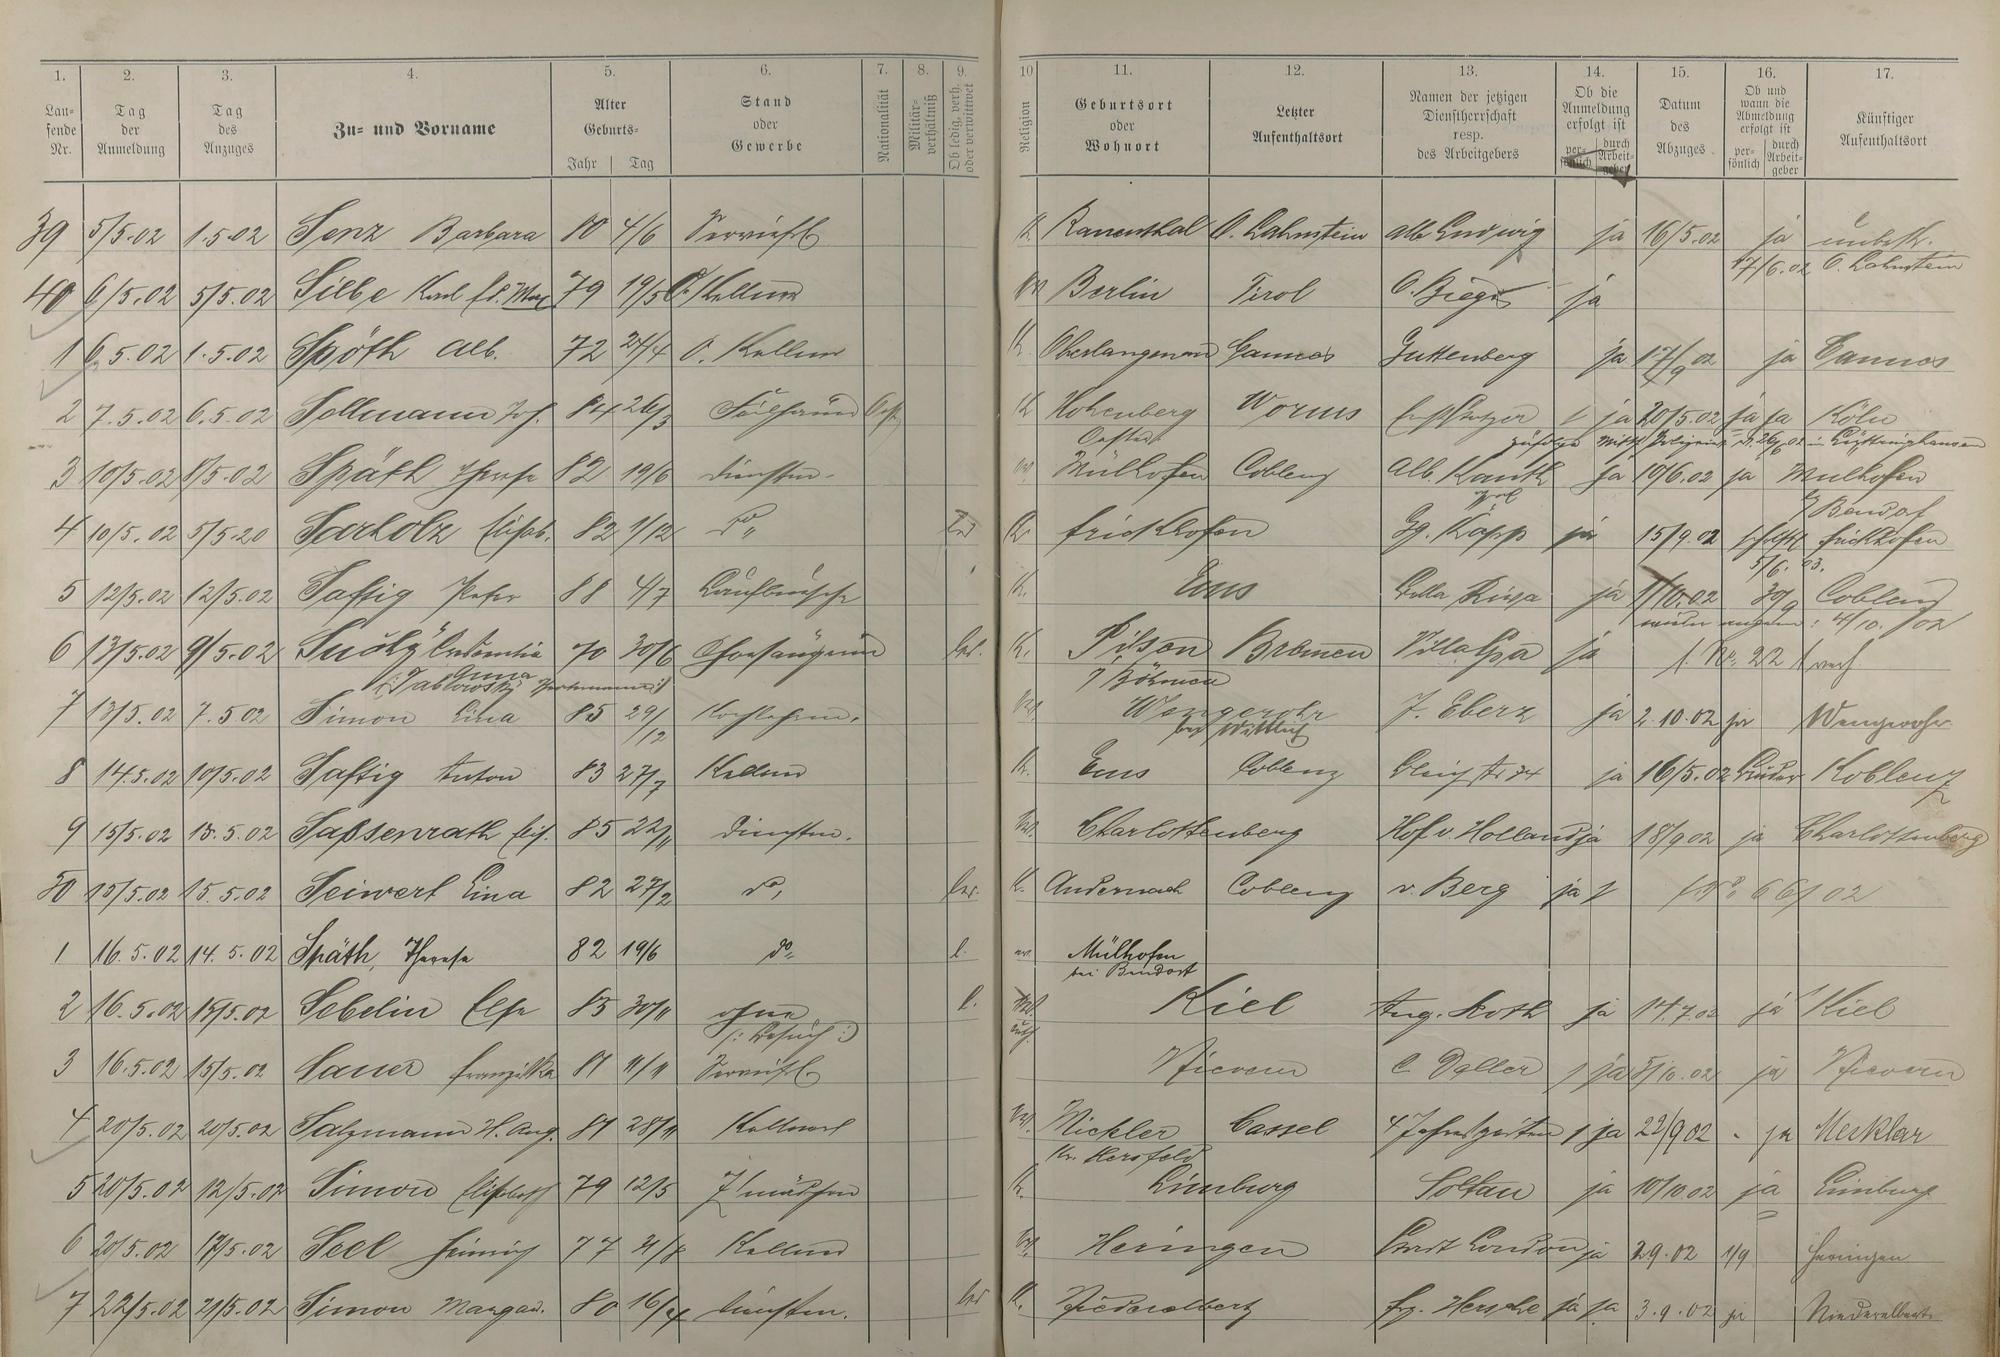 1. 2. 3. 4. 5. 6. 7. 8. 9. 10 11. 12. 13. 14. 15. 16. 17.
Laufende Nr. Tag der Anmeldung Tag des Anzuges Zu- und Vorname Alter Geburts- Jahr Tag Stand oder Gewerbe Nationalität Militärverhältniß Ob ledig, verh. oder verwittwet Religion Geburtsort oder Wohnort Letzter Aufenthaltsort Namen der jetzigen Dienstherrschaft resp. des Arbeitgebers Ob die Anmeldung erfolgt ist persönlich durch Arbeitgeber Datum des Abzuges Ob und wann die Abmeldung erfolgt ist persönlich durch Arbeitgeber Künftiger Aufenthaltsort
39 5/5.02 1.5.02 Senz Barbara 80 4/6 K Rauenthal O. Lahnstein alb Ludwig ja 16/5.02 ja unbek.
17/6.02 O. Lahnstein
40 6/5.02 5/5.02 Silbe Karl 79 19/5 Kellner Berlin Tirol ja
1 6.5.02 1.5.02 Späth Alb. 72 24/4 O. Kellner K. Oberlangenau Cannes Guttenberg ja 17/9 02 ja Cannes
2 7.5.02 6.5.02 Sollmann Jos. 84 26/3 K Hohenberg Worms ja 20/5.02 ja ja Köln
3 10/5.02 8/5.02 Späth Therese 82 19/6 Dienstm. Mülhofen Coblenz Alb. Kauth ja 19/6.02 ja Mulhofen
Bendof
4 10/5.02 5/5.20 Sarholz Elisab. 82 1/12 do K. Frickhofen Gg. Kapp ja 15/9.02 Frickhofen
5/6. 03.
5 12/5.02 12/5.02 Saftig Peter 88 4/7 Laufbursche K. Ems Villa Riga ja 1/10.02 30/9 Coblenz
4/10./02
6 13/5.02 9/5.02 70 30/6 Chorsängerin led. K. Pilsen Bremen Villa Spa ja f. No. 22
Anna
/ Böhmen
7 13/5.02 7.5 02 Simon Lina 85 29/12 Wengerohr J. Eberz ja 2.10.02 ja Wengerohr
bei Wittlich
8 14.5.02 10/5.02 Saftig Anton 83 27/7 Kellner K. Ems Coblenz ja 16/5.02 Bruder Koblenz
9 15/5.02 13.5.02 Saßsenrath Elis. 85 22/11 Dienstm. Charlottenberg Hof v. Holland ja 18/9 02 ja Charlottenberg
50 15/5.02 15.5.02 Seiwert Lina 82 27/2 do led. K. Andernach Coblenz v. Berg ja No 66/02
1 16.5.02 14.5.02 Späth, Therese 82 19/6 do l. ev. Mülhofen
bei Bendorf
2 16.5.02 15/5.02 Sebelin Else 83 30/11 ohne l. Kiel Aug. Roth ja 14.7.02 ja Kiel
(: Besuch :)
3 16.5.02 15/5.02 Sauer Franziska 81 11/11 Nievern ja 3/10.02 ja Nievern
4 20/5.02 20/5.02 Salzmann H. Aug. 81 28/11 Kellner Cassel 4 Jahreszeiten ja 22/9 02 ja Mecklar
Kr. Hersfeld
5 20/5.02 12/5.02 Simon Elisabeth 79 12/5 K. Limburg Soltau ja 10/10 02 ja Limburg
6 20/5.02 17/5.02 Seel Heinrich 77 21/8 Kellner Heringen Stadt London ja 2.9.02 1/9 Heringen
7 22/5.02 21/5.02 Simon Margar. 80 16/4 Dienstm. led K. Niederelbert ja ja 3.9.02 ja Niederelbert